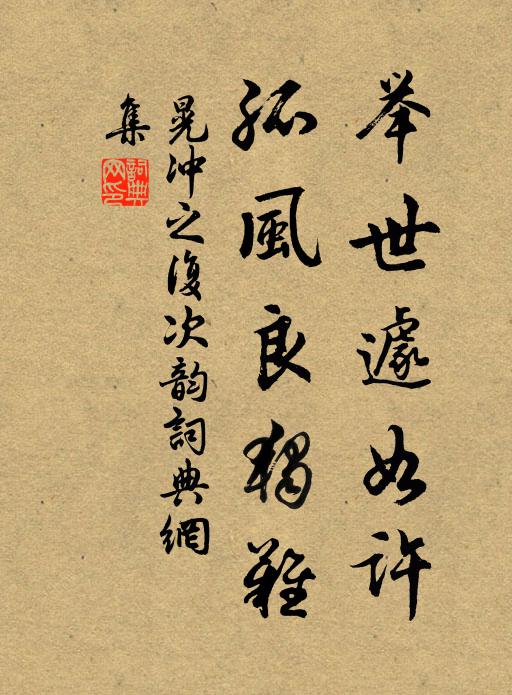 举世遽如许
孤風良獨難
晁冲之復次韵詞典網
集
詞典網印